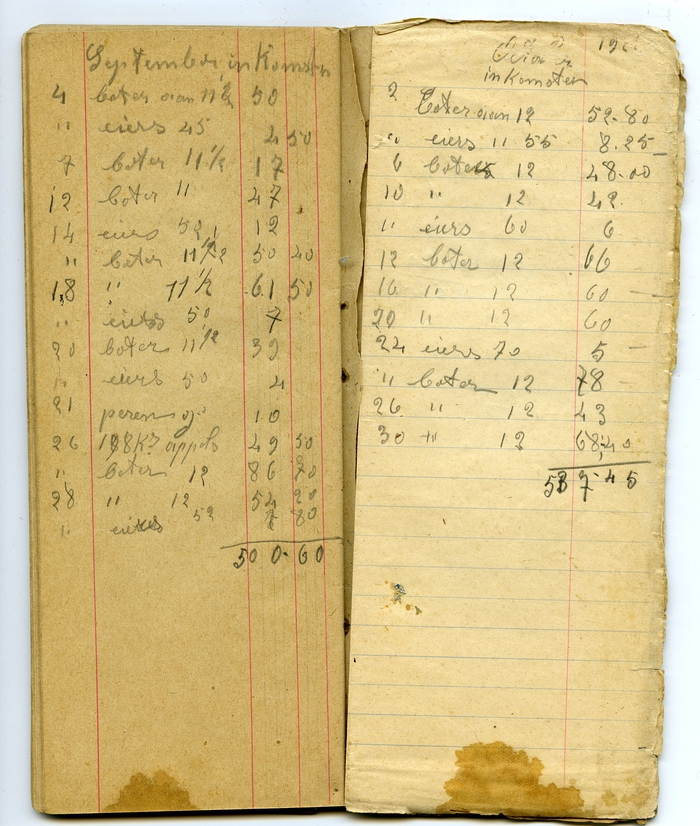 September inkomsten
4 boter aan 11½ 50
" eiers 45 4 50
7 boter 11½ 17
12 boter " 47
14 eiers 50 12
" boter 11½ 50 40
18 " 11½ 61 50
" eiers 50 7
20 boter 11½ 39
" eiers 50 4
21 peren 10
26 198 K? appels 49 50
" boter 12 86 70
28 " 12 54 20
" eiers 52 7 80
500-60
inkomsten
2 Boter aan 12 52-80
" eiers " 55 8.25
6 boter 12 48.00
10 " 12 42
" eiers 60 6
12 boter 12 66
16 " 12 60
20 " 12 60
22 eiers 70 5
" boter 12 78
26 " 12 43
30 " 12 68,40
537-45